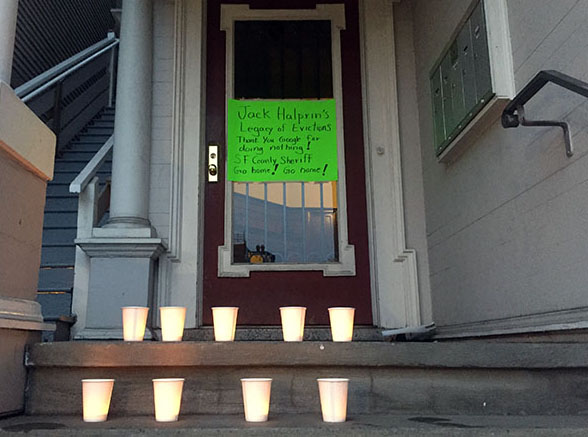 Jack Halprin's
Legacy of Evictions
Thank You Google for
doing nothing!
SF County Sheriff
Go home! Go home!